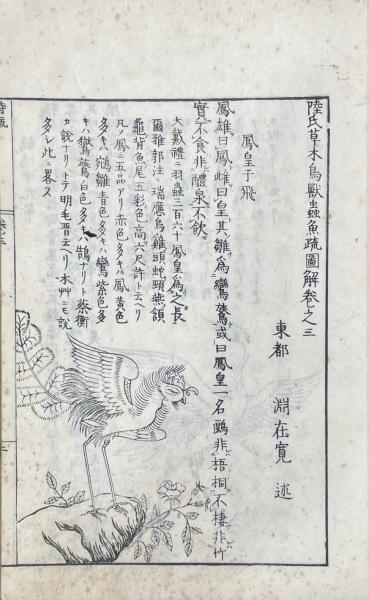 陸氏草木鳥獸蟲魚疏圖解卷之三
東都 淵在寛 述
鳳皇于飛
鳳雄曰鳳雌曰皇其雛為鸞鷟或曰鳳皇一名鶠非梧桐不棲非竹
實不食非醴泉不飲
大戴禮ニ羽蟲三百六十鳳皇為之長
爾雅郭注ニ瑞應鳥雞頭蛇頸燕頷
龜背魚尾五彩色高六尺許ト云ヘリ
凡ソ鳳ニ五品アリ赤色多キハ鳳黃色
多キハ鵷雛青色多キハ鸞紫色多
キハ鸑鷟白色多キハ鵠ナリト蔡衡
カ說ナリトテ明毛晋云ヘリ本艸ニモ說
多シ此ニ畧ス
卷三